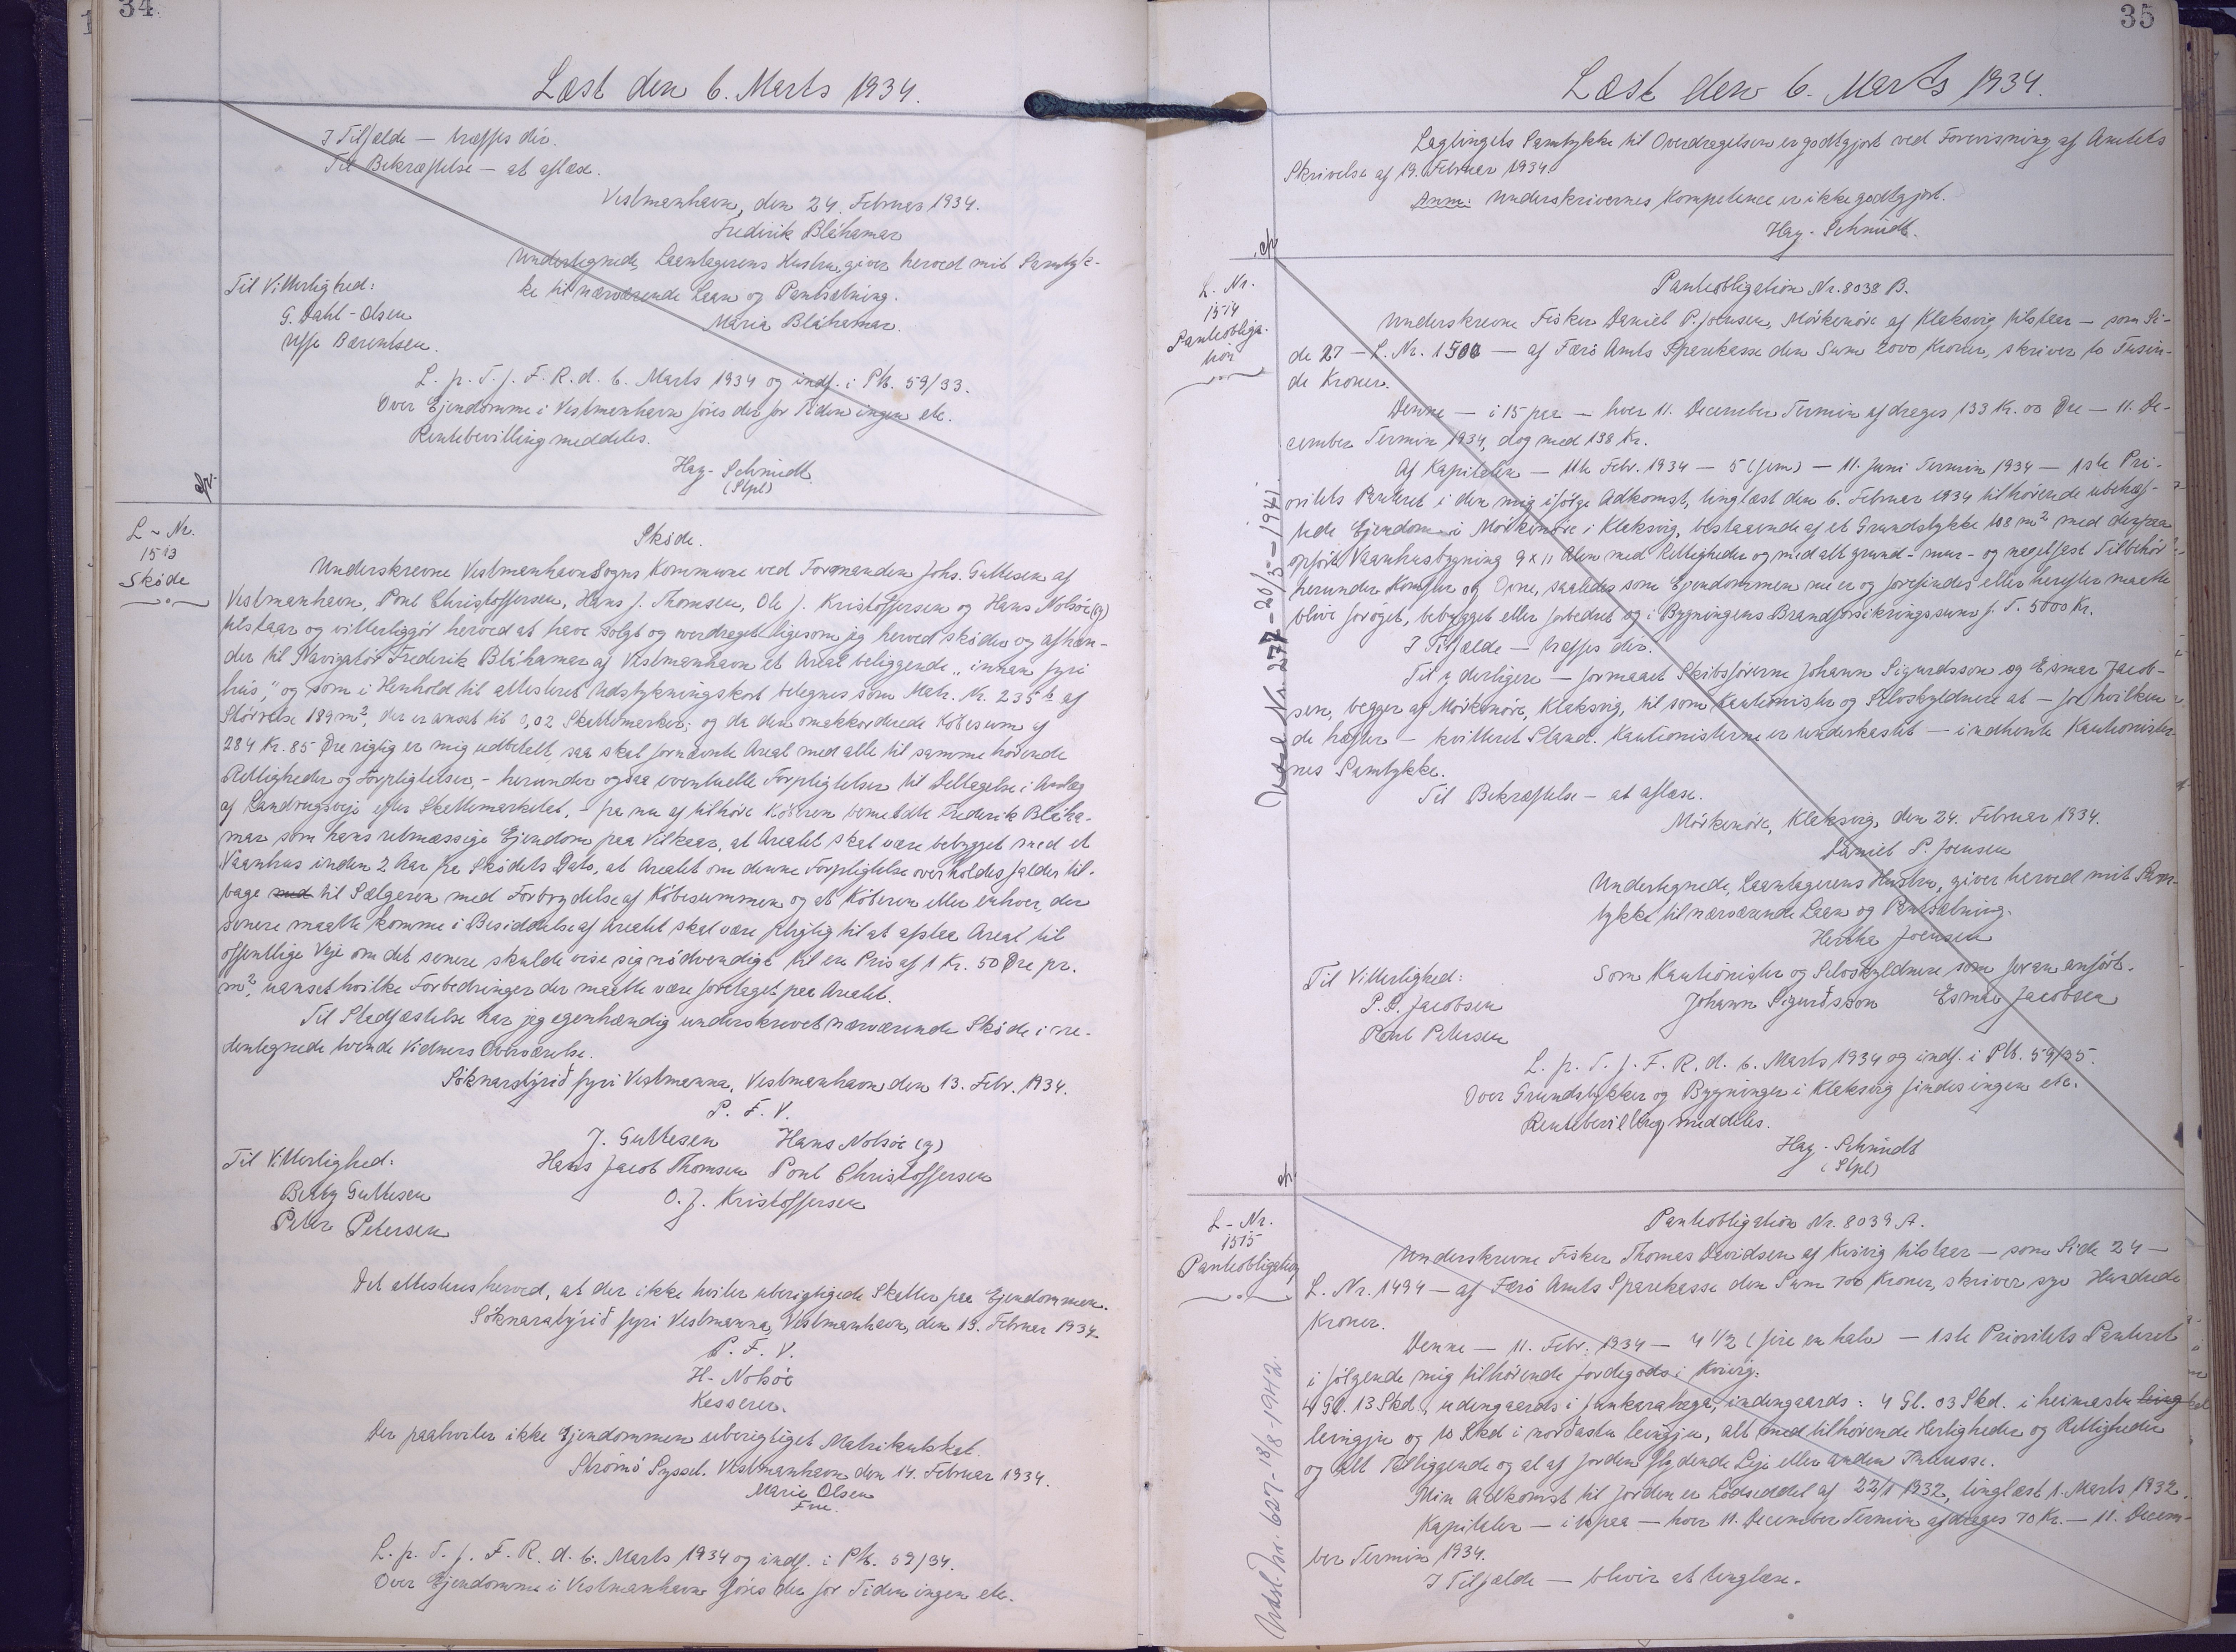 34
Læst den 6. Marts 1934.
I Tilfælde — træffes div.
Til Bekræftelse — at aflæse.
Vestmanhavn, den 24. Februar 1934.
Frederik Bláhamar
Undertegnede, Laantagerens Hustru, giver herved mit Samtyk-
ke til nærværende Laan og Pantsætning.
Maria Bláhamar.
Til Vitterlighed:
G. Dahl-Olsen
Uffe Bærentsen.
L. p. T. f. F. R. d. 6. Marts 1934 og indf. i Pb. 59/33.
Over Ejendomme i Vestmanhavn föres der for Tiden ingen etc.
Rentebevilling meddeles.
Hay-Schmidt
(Stpl)
L-Nr.
1513
Sköde
Sköde.
Underskrevne Vestmanhavns Sogns Kommune ved Formanden Johs. Guttesen af
Vestmanhavn, Poul Christoffersen, Hans J. Thomsen, Ole J. Kristoffersen og Hans Nolsöe (g)
tilstaar og vitterliggör herved at have solgt og overdraget ligesom jeg herved sköder og afhæn-
der til Navigatör Frederik Bláhamar af Vestmanhavn et Areal beliggende "innan fyri
hús," og som i Henhold til attesteret Udstykningskort betegnes som Matr. Nr. 235 b af
Störrelse 189 m², der er ansat til 0,02 Skattemarker; og da den omakkorderede Köbesum af
284 Kr. 85 Öre rigtig er mig udbetalt, saa skal fornævnte Areal med alle til samme hörende
Rettigheder og Forpligtelser, - herunder ogsaa eventuelle Forpligtelser til Deltagelse i Anlæg
af Landevugsveje efter Skattemarketal, - fra nu af tilhöre Köberen bemeldte Frederik Bláha-
mar som hans retmæssige Ejendom paa Vilkaar, at Arealet skal være bebygget med et
Vaanhus inden 2 Aar fra Sködets Dato, at Arealet om denne Forpligtelse overholdes falder til-
bage med til Sælgeren med Fortrydelse af Köbesummen og at Köberen eller enhver, der
senere maatte komme i Besiddelse af Arealet skal være pligtig til at afstaa Areal til
offentlige Veje om det senere skulde vise sig nödvendigt til en Pris af 1 Kr. 50 Öre pr.
m², uanset hvilke Forbedringer der maatte være foretaget paa Arealet.
Til Stadfæstelse har jeg egenhændig underskrevet nærværende Sköde i ne-
dentegnede tvende Vidners Overværelse.
Sóknarstýrið fyri Vestmanna, Vestmanhavn den 13. Febr. 1934.
P. F. V.
J. Guttesen Hans Nolsöe (g)
Til Vitterlighed: Hans Jacob Thomsen Poul Christoffersen
Betty Guttesen O. J. Kristoffersen
Peter Petersen
Det attesteres herved, at der ikke hviler uberigtigede Skatter paa Ejendommen.
Sóknarstýrið fyri Vestmanna, Vestmanhavn, den 13. Februar 1934
P. F. V.
H. Nolsöe
Kasserer.
Der paahviler ikke Ejendommen uberigtiget Matrikulskat.
Strömö Syssel. Vestmanhavn den 14. Februar 1934.
Marie Olsen
Frue.
L. p. T. f. F. R. d. 6. Marts 1934 og indf. i Pb. 59/34.
Over Ejendomme i Vestmanhavn föres der for Tiden ingen etc.
35
Læst den 6. Marts 1934.
Lagtingets Samtykke til Overdragelsen er godtgjort ved Forevisning af Amtets
Skrivelse af 19. Februar 1934.
Anm: Underskrivernes Kompetence er ikke godtgjort.
Hay-Schmidt.
L. Nr.
1514
Panteobliga-
tion
Panteobligation Nr. 8038 B.
Underskrevne Fisker Daniel P. Joensen, Mörkenöre af Klaksvig tilstaar — som Si-
de 27 — L. Nr. 1500 — af Færö Amts Sparekasse den Sum 2000 Kroner, skriver to Tusin-
de Kroner.
Denne — i 15 paa — hver 11. December Termin afdrages 133 Kr. 00 Öre — 11. De-
cember Termin 1934, dog med 138 Kr.
Af Kapitalen — 11te Febr. 1934 — 5 (fem) — 11. Juni Termin 1934 — 1ste Pri-
oritets Panteret i den mig ifölge Adkomst, tinglæst den 6. Februar 1934 tilhörende ubehæf-
tede Ejendom i Mörkenöre i Klaksvig, bestaaende af et Grundstykke 108 m² med derpaa
opfört Vaanhusbygning 9 x 11 Alen med Rettigheder og med alt grund- mur- og nagelfast Tilbehör
herunder Komfur og Ovne, saaledes som Ejendommen nu er og forefindes eller herefter maatte
blive foröget, bebygget eller forbedret og i Bygningens Brandforsikringssum f. T. 5000 Kr.
I Tilfælde — træffes der.
Til yderligere — formaaet Skibsförerne Johann Sigurdsson og Esmar Jacob-
sen, begge af Mörkenöre, Klaksvig, til som Kautionister og Selvskyldnere at — for hvilken
de hæfter — kvitteret Stand. Kautionisterne er underkastet — indhente Kautionister-
nes Samtykke.
Til Bekræftelse — at aflæse.
Mörkenöre, Klaksvig, den 24. Februar 1934.
Daniel P. Joensen
Undertegnede, Laantagerens Hustru, giver herved mit Sam-
tykke til nærværende Laan og Pantsætning.
Hertha Joensen
Til Vitterlighed: Som Kautionister og Selvskyldnere som foran anfört.
P. P. Jacobsen Johann Sigurðsson Esmar Jacobsen
Poul Petersen
L. p. T. f. F. R. d. 6. Marts 1934 og indf. i Pb. 59/35.
Over Grundstykker og Bygninger i Klaksvig findes ingen etc.
Rentebevilling meddeles.
Hay-Schmidt
(Stpl)
Udsl. Nr. 277-20/5-1941.
L-Nr.
1515
Panteobligation
Panteobligation Nr. 8039 A.
Underskrevne Fisker Thomas Davidsen af Kvivig tilstaar — som Side 24 —
L. Nr. 1494 — af Færö Amts Sparekasse den Sum 700 Kroner, skriver syv Hundrede
Kroner.
Denne — 11. Febr. 1934 — 4 1/2 (fire en halv — 1ste Prioritets Panteret
i fölgende mig tilhörende Jordegods i Kvivig:
4 Gl. 13 Skd., udengaards i Junkarahaga, indengaards: 4 Gl. 03 Skd. i heimastu leing
leingju og 10 Skd i norðastu leingju, alt med tilhörende Herligheder og Rettigheder
og alt Tilliggende og al af Jorden flydende Leje eller anden Indtægt.
Min Adkomst til Jorden er Lodseddel af 22/1 1932, tinglæst 1. Marts 1932.
Kapitalen — i 10 paa — hver 11. December Termin afdrages 70 Kr. — 11. Decem-
ber Termin 1934.
I Tilfælde — bliver at tinglæse.
Udsl. Nr. 627-18/8-1942.